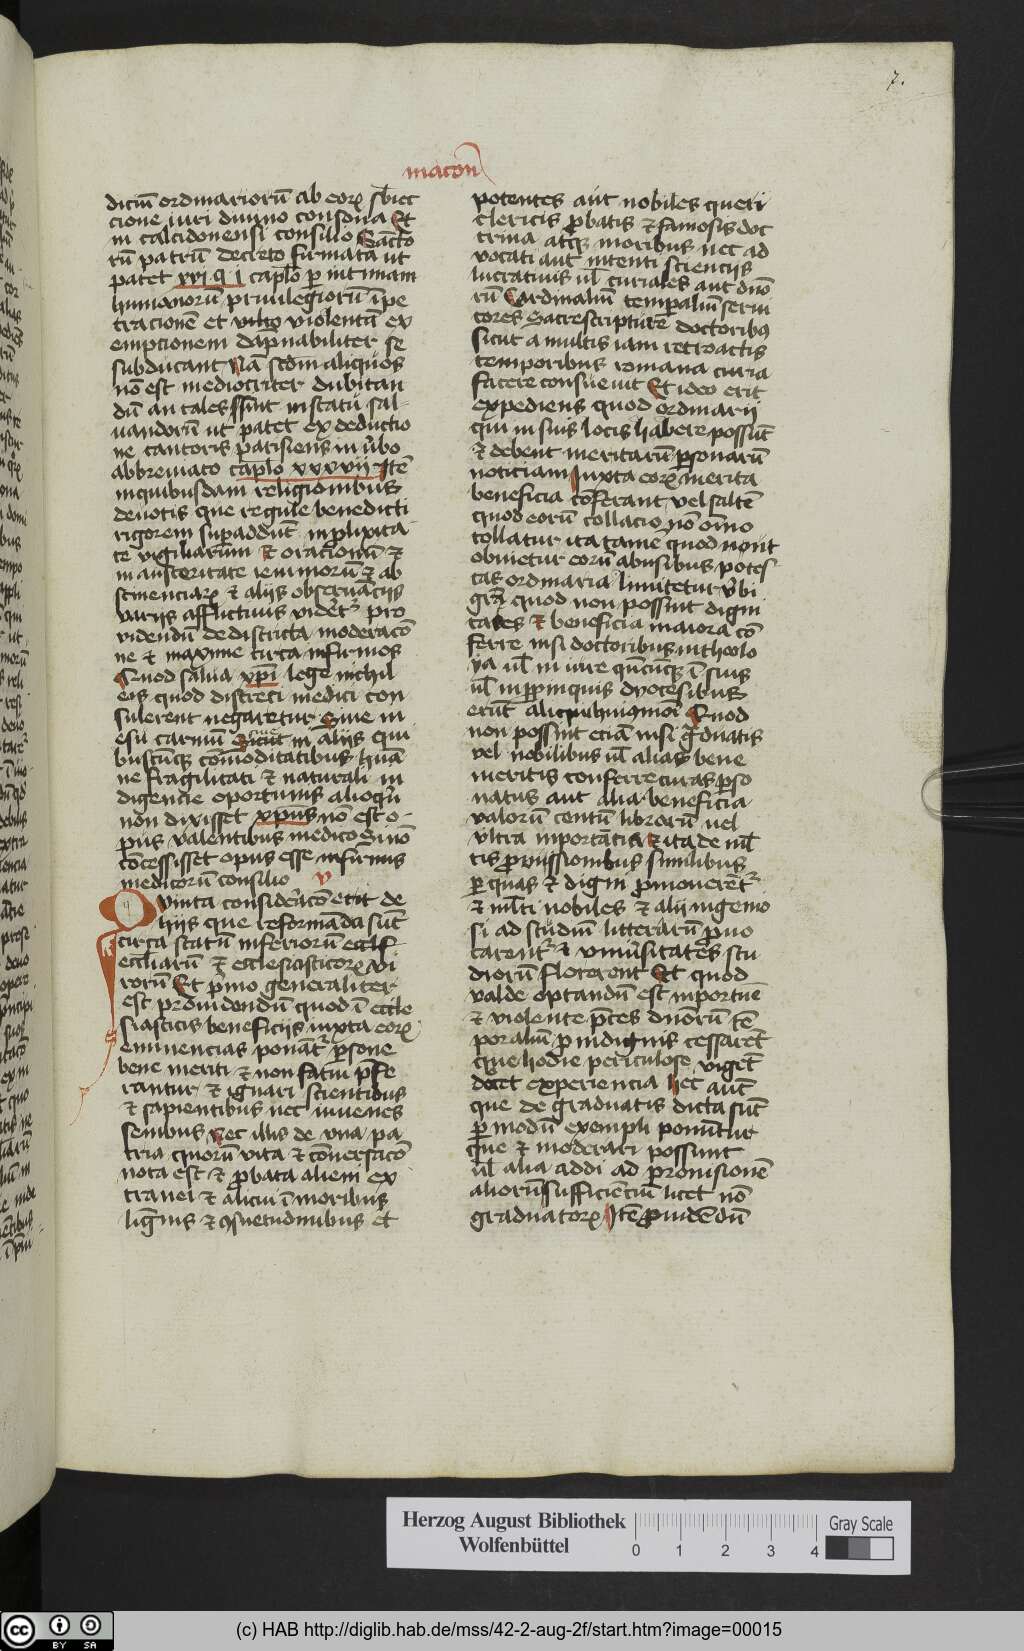 7.
macōn
diciūȝ ordinariorū ab eorꝝ sbiec
cione iuri diuino consōna Et
in calcidonensi consilio Sancto
rū patrū decreto firmata ut
patet xvi q i caplo per intimam
humanorū priuilegiorū īpe
tracionē et violentā ex
emptionem dāpnabiliter se
subducant Nā scdm aliquos
nō est mediocriter dubitan
dū an tales sint in statu sal-
uandorū ut patet ex deductio
ne cantoris parisiens in ūbo
abbreuiato caplo xxxvii Itē
in quibusdam religionibus
deuotis que regule benedicti
rigorem superaddūt in plixita
te vigiliarum et oracionū et
in austeritate ieiuniorū et ab
stinenciarꝝ et aliis obseruācijs
variis afflictiuis vidēt pro
videndū de discreta moderacō
ne et maxime circa infirmos
Quod salua xpi lege nichil
eis quod discreti medici con
sulerent negaretur Siue in
esu carniū Sicut in aliis qui
buscūqȝ cōmoditatibus huā
ne fragilitati et naturali in
digencie oportunis alioqn
non dixisset xpus nō est o-
pus valentibus medico Si nō
cōcessisset opus esse infirmis
medicorū consilio v
Quinta consideracō erit de
hijs que reformāda sūt
circa statū inferiorū eccle
ecclīarū et ecclesiasticorꝝ vi
rorū Et pmo generaliter
est prouidendū quod ī eccle
siasticis beneficijs iuxta eorꝝ
eminencias ponāt psone
bene meriti et non fatui pfe
rantur et ignari scientibus
et sapientibus nec iuuenes
senibus Nec illis de vna pa
tria quorū vita et cōuersacō
nota est et pbata alieni ex
tranei et alicui ī moribus
ligwis et cosuetudinibus et
potentes aūt nobiles queri
clericis pbatis et famosis doc
trina atqȝ moribus nec ad
vocati aut intenti sciencijs
lucratiuis ul curiales aut dnō
rū Cardinaliū temporaliū serui
tores Sacrescripture doctoribus
sicut a multis iam retroactis
temporibus romana curia
facere consueuit Et ideo erit
expediens quod ordinarij
qui in suis locis habere possūt
et debent meritarū psonarū
noticiam Iuxta eorꝝ merita
beneficia cōferant vel saltē
quod eorū collacio nō oīno
tollatur ita tamē quod
obuietur eorū abusibus potes
tas ordinaria limitetur ūbi
grā quod non possint digni
tates et beneficia maiora cō
ferre nisi doctoribus in theolo
ya ul in iure in suis
ul in ppinquis dyocesibus
Quod
non possint etiā nisi gduatis
vel nobilibus ul alias bene
meritis conferre curas pso
natus aut alia beneficia
valorū centū librarū vel
ultra Et ita de ml
tis puissionibus similibus
per quas et digni pmouerēt
et mlti nobiles et alij ingenio
si ad studiū litterarū puo
carent et vniūsitates stu
diorū florerent Et quod
valde optandū est inportūe
et violente pces dnorū tē
poraliū p indignis cessarēt
que hodie periculose vigēt
docet experiencia hec aūt
que de graduatis dicta sūt
per modū exempli ponūtur
que et moderari possunt
ul alia addi ad promisionē
aliorū sufficienciū licet nō
graduatorꝝ Itē puidēdū
Herzog August Bibliothek
Wolfenbüttel
0 1 2 3 4
Gray Scale
cc BY SA
(c) HAB http://diglib.hab.de/mss/42-2-aug-2f/start.htm?image=00015